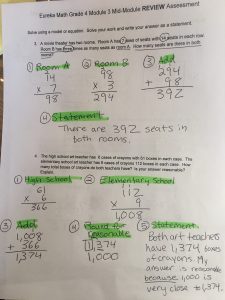 Eureka Math Grade 4 Module 3 Mid-Module REVIEW Assessment
Solve using a model or equation. Show your work and write your answer as a statement.
3. A movie theater has two rooms. Room A has 7 rows of seats with 14 seats in each row.
Room B has three times as many seats as Room A. How many seats are there in both
rooms?
① Room A
14
x 7
98
② Room B
98
x 3
294
③ Add
294
+ 98
392
④ Statement
There are 392 seats in
both rooms.
4. The high school art teacher has 6 cases of crayons with 61 boxes in each case. The
elementary school art teacher has 9 cases of crayons with 112 boxes in each case. How
many total boxes of crayons do both teachers have? Is your answer reasonable?
Explain.
① High School
61
x 6
366
② Elementary School
112
x 9
1,008
③ Add
1,008
+ 366
1,374
④ Round for
reasonable
1,374
1,000
⑤ Statement
Both art teachers
have 1,374 boxes
of crayons. My
answer is reasonable
because 1,000 is
very close to 1,374.